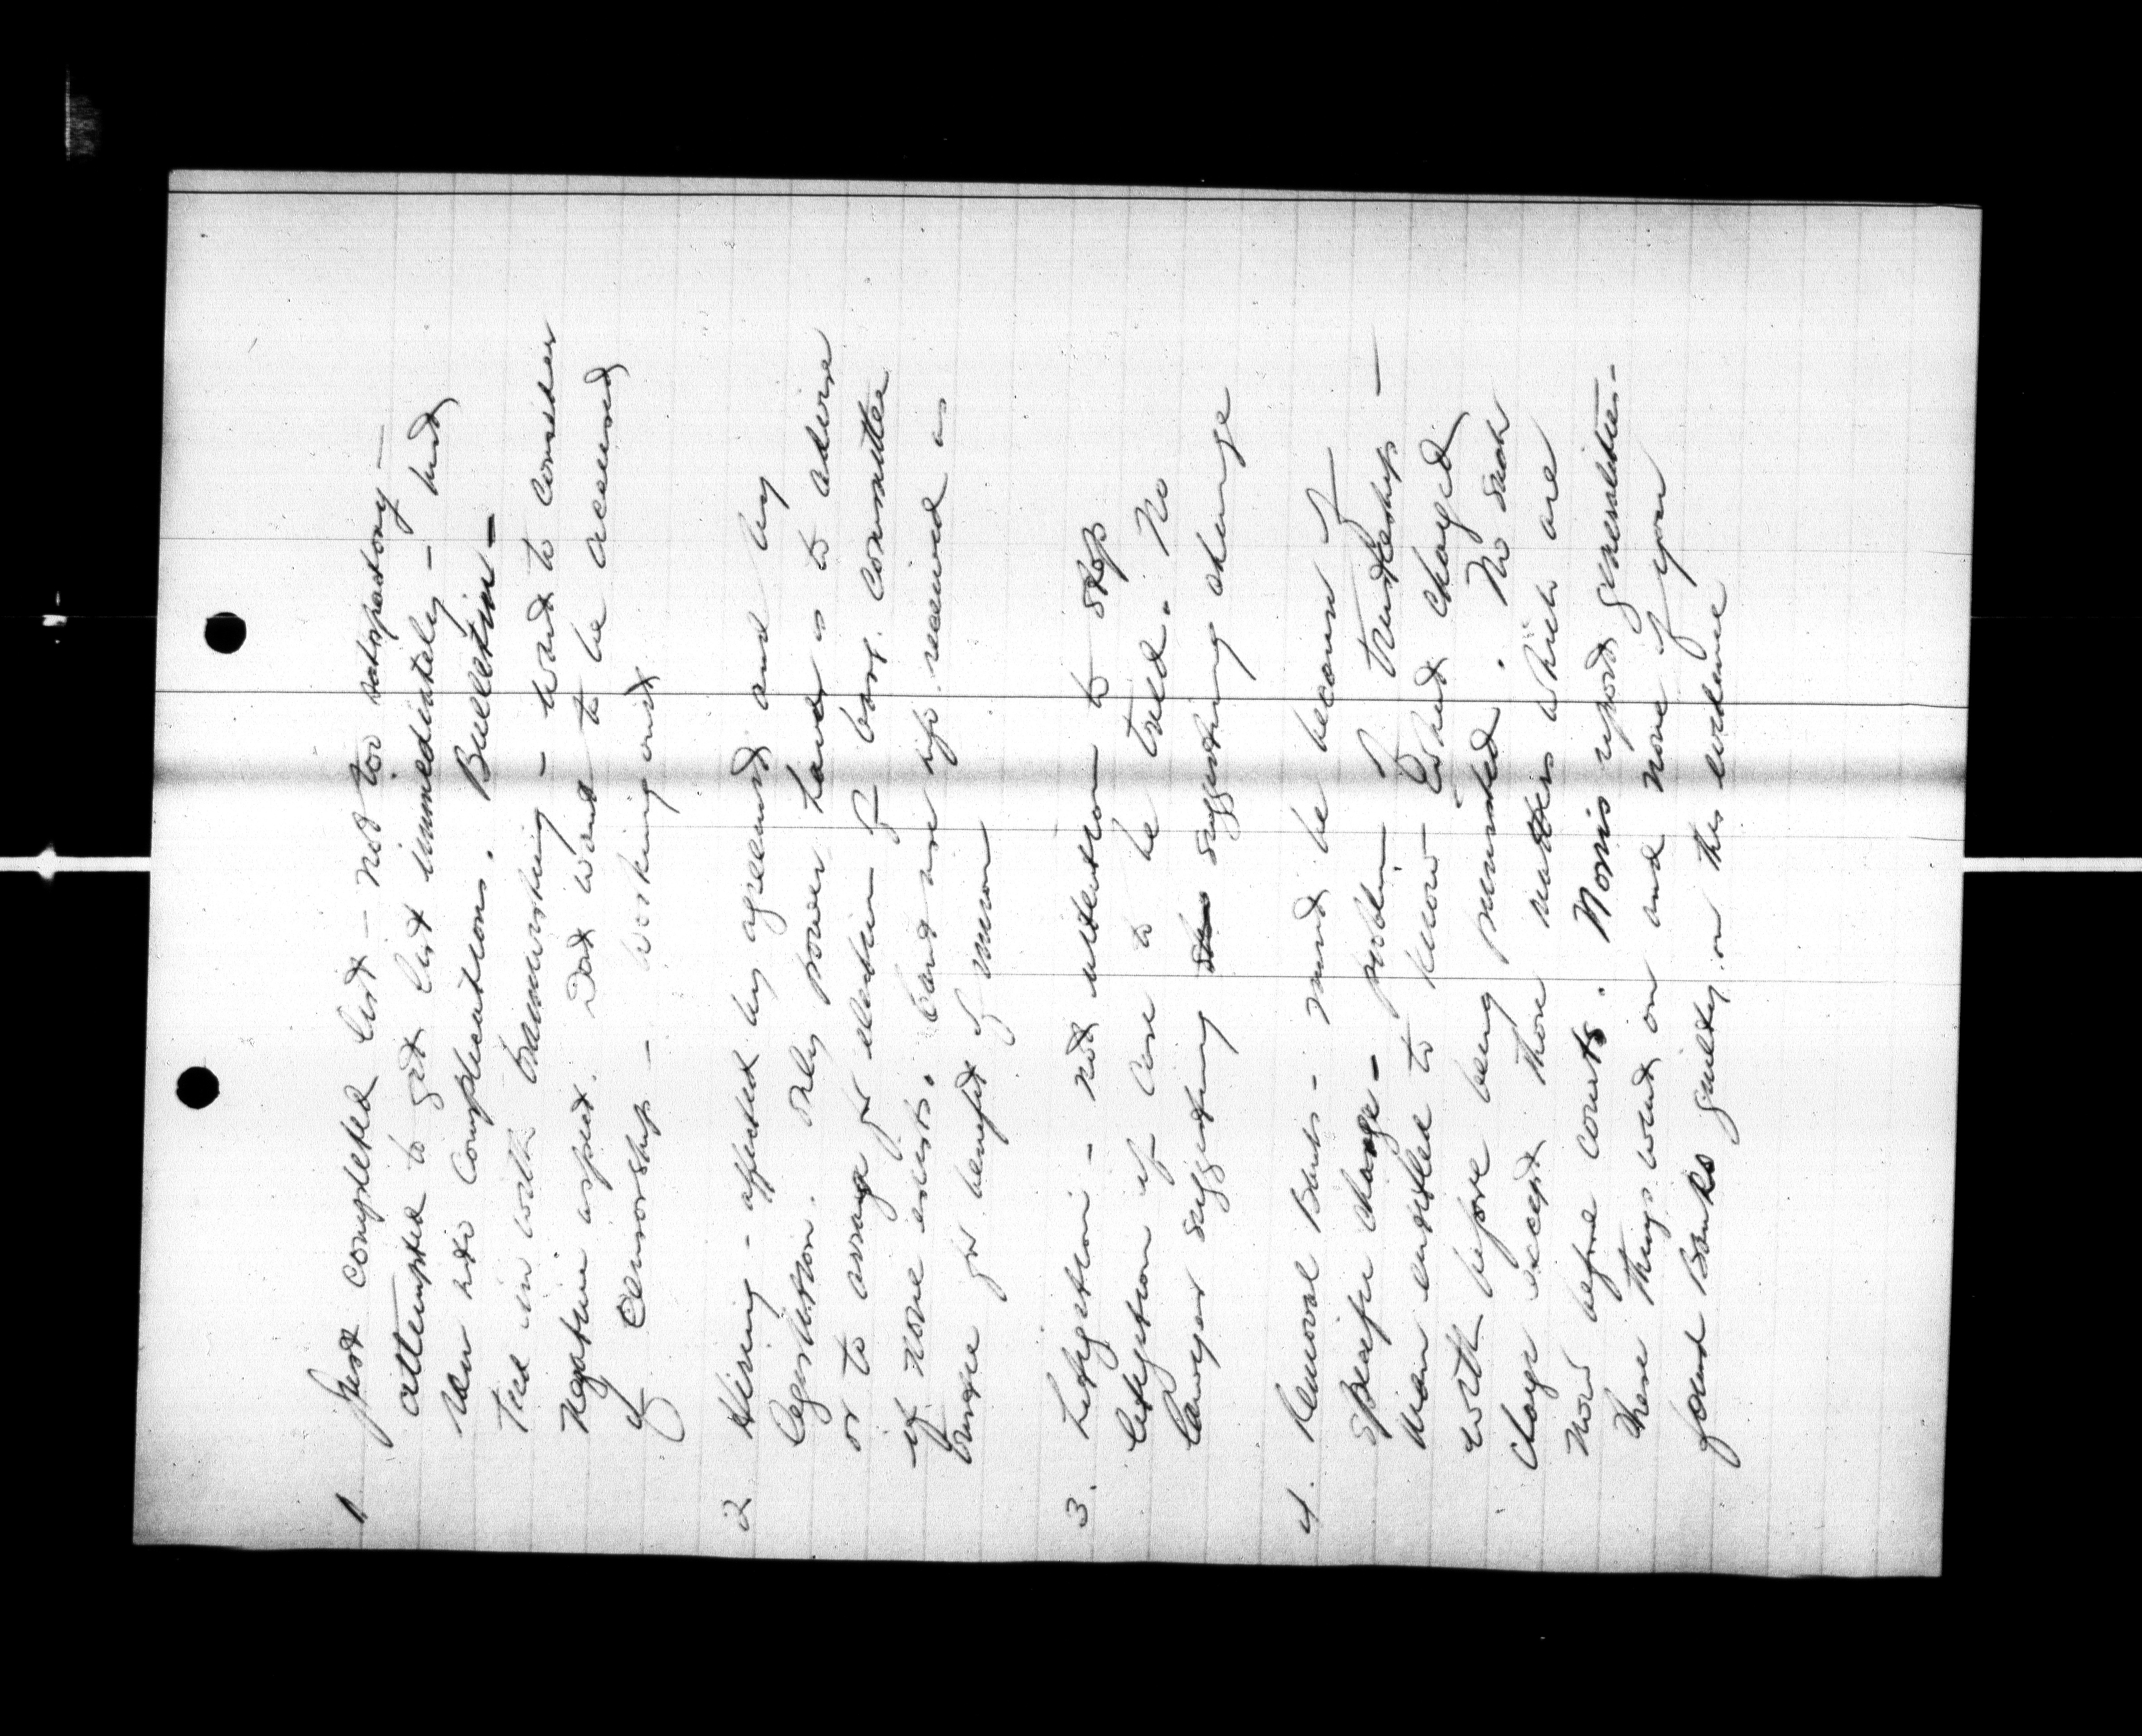 1. Just completed list - not too satisfactory -
attempted to get list immediately - but
ran into complications. Bulletin -
Tied in with transmitting - want to consider
negative aspect. Dont want to be accused
of Censorship - working out
2 Hiring - affected by agreement and by
legislation. Only power Lands is to advise
or to arrange for election of barg. committee
if none exists. Cant use info received as
trustee for benefit of union
3. Litigation - not intention to stop
litigation if case to be tried. No
lawyer suggesting suggesting change
4. Removal Banks - must be because of
specific charge - problem of trusteeship -
Man entitled to know what charged
with before being punished. No such
charge except those matters which are
now before courts. Norris report generalities -
These things went on and none of you
found Banks guilty on this evidence